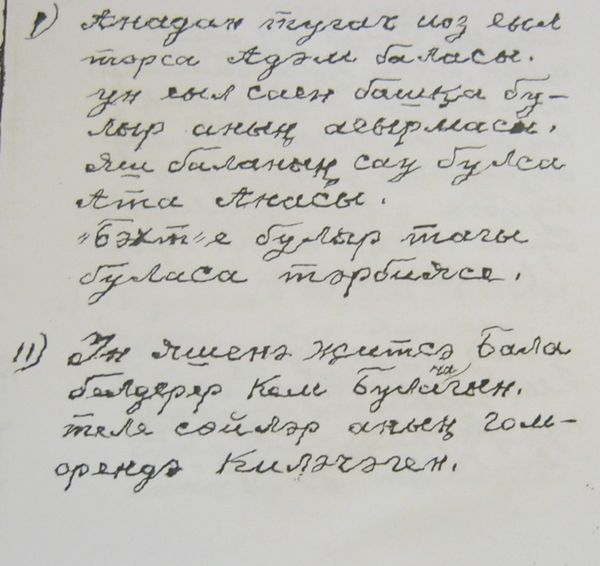 I) Анадан тугач иоз еыл
торса Адәм баласы.
ун еыл саен башка бу-
лыр аның аеырмасы.
яш баланың сау булса
Ата Анасы.
"Бәхт"е булыр тагы
буласа тәрбиясе.
II) Ун яшенә җитсә Бала
белдерер Кем Булачагын.
теле сөйләр аның гом-
орендә Киләчәген.